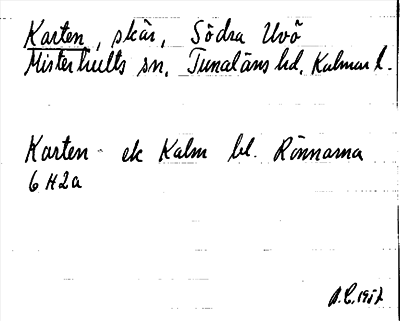 Karten, skär, Södra Uvö
Misterhults sn, Tunaläns hd, Kalmar l.
Karten ek Kalm bl. Rönnarna
6 H2a